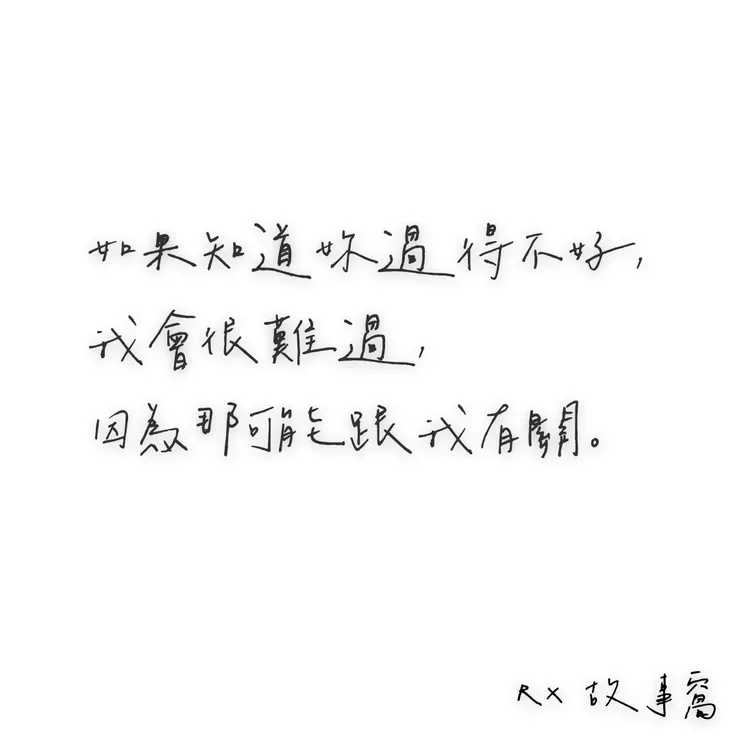 如果知道妳過得不好,
我會很難過,
因為那可能跟我有關。
RX 故事窩